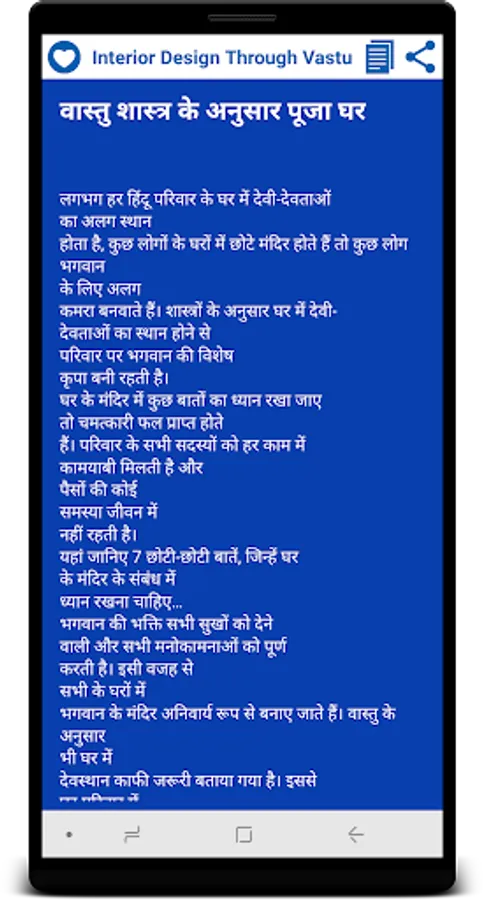 Interior Design Through Vastu
वास्तु शास्त्र के अनुसार पूजा घर
लगभग हर हिंदू परिवार के घर में देवी-देवताओं
का अलग स्थान
होता है, कुछ लोगों के घरों में छोटे मंदिर होते हैं तो कुछ लोग
भगवान
के लिए अलग
कमरा बनवाते हैं। शास्त्रों के अनुसार घर में देवी-
देवताओं का स्थान होने से
परिवार पर भगवान की विशेष
कृपा बनी रहती है।
घर के मंदिर में कुछ बातों का ध्यान रखा जाए
तो चमत्कारी फल प्राप्त होते
हैं। परिवार के सभी सदस्यों को हर काम में
कामयाबी मिलती है और
पैसों की कोई
समस्या जीवन में
नहीं रहती है।
यहां जानिए 7 छोटी-छोटी बातें, जिन्हें घर
के मंदिर के संबंध में
ध्यान रखना चाहिए...
भगवान की भक्ति सभी सुखों को देने
वाली और सभी मनोकामनाओं को पूर्ण
करती है। इसी वजह से
सभी के घरों में
भगवान के मंदिर अनिवार्य रूप से बनाए जाते हैं। वास्तु के
अनुसार
भी घर में
देवस्थान काफी जरूरी बताया गया है। इससे